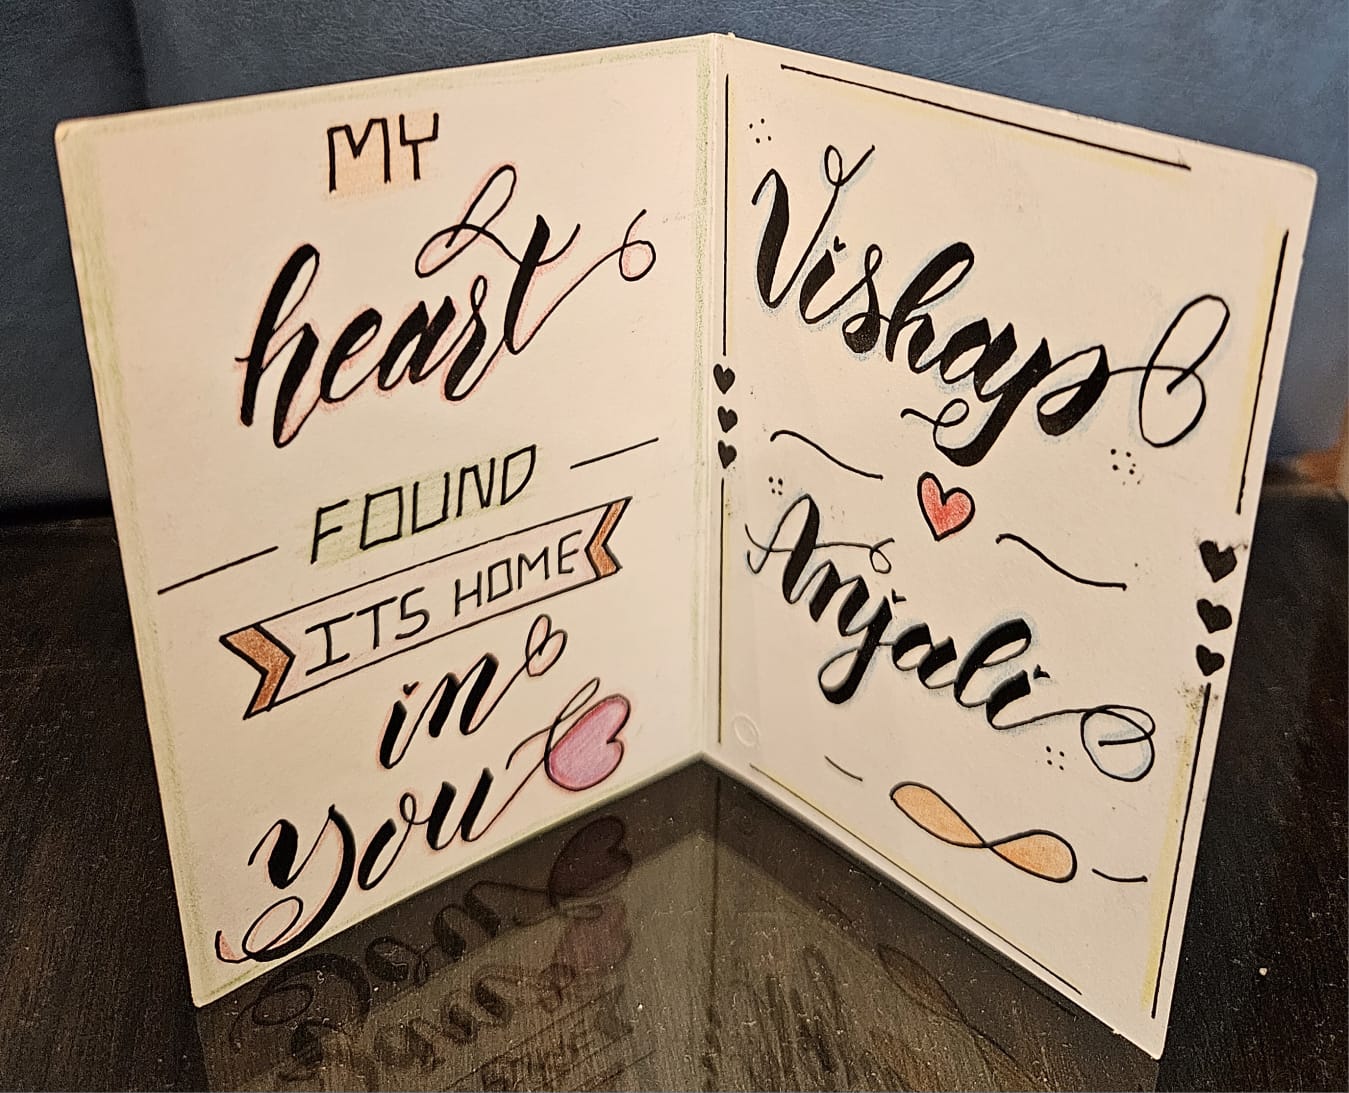 MY
heart
FOUND
ITS HOME
in
you
Vishap
Anjali